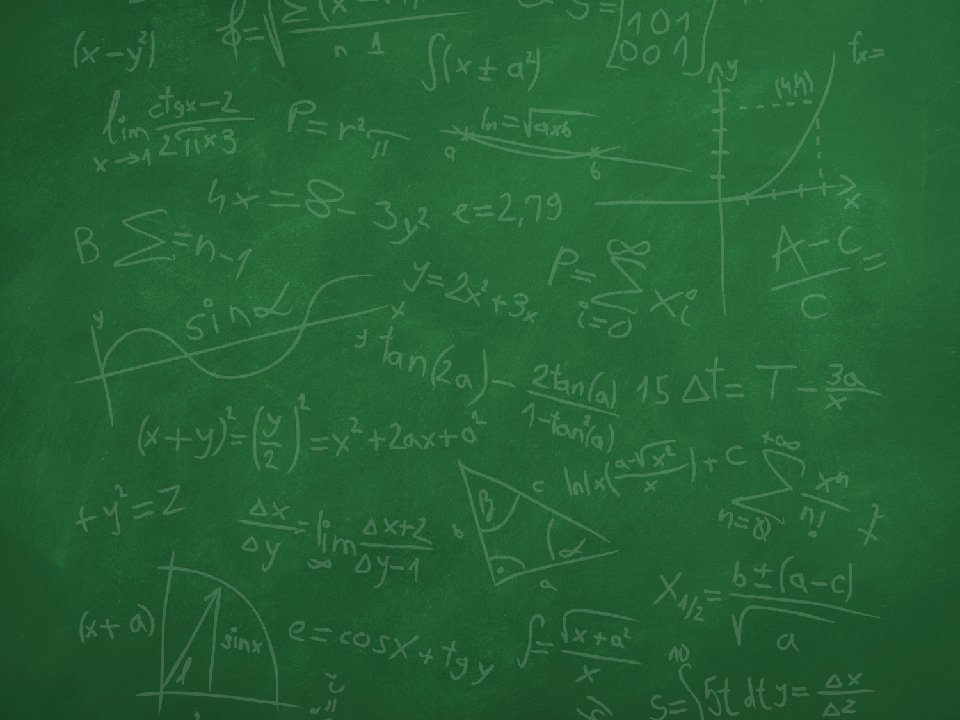 (x-y²)
n 1
∫(x ± a²)
1 0 1
0 0 1
fx=
lim x→1 ctgx-2 / 2π×3
P= r²
ln=√axb
a
b
y
(4,h)
x
4x = 8 - 3y²
e=2,79
B Σ=n-1
y=2x²+3x
P= ∞ Σ i=0 Xi
A-C / C =
y
sinα
x
tan(2a) - 2tan(a) / 1-tan²(a)
15 Δt= T - 3a / x
(x+y)²=(y/2)²=x²+2ax+a²
ln|x(a-√x² / x)+C
+∞ Σ n=0 xn / n!
+y²=Z
Δx / Δy = lim ∞ Δx+2 / Δy-1
β
α
c
b
a
X1/2= b±(a-c) / √a
(x+a)
sinx
1
e=cosx+tgy
∫= √x+a² / x
10
S=∫5t dt y= Δx / Δz